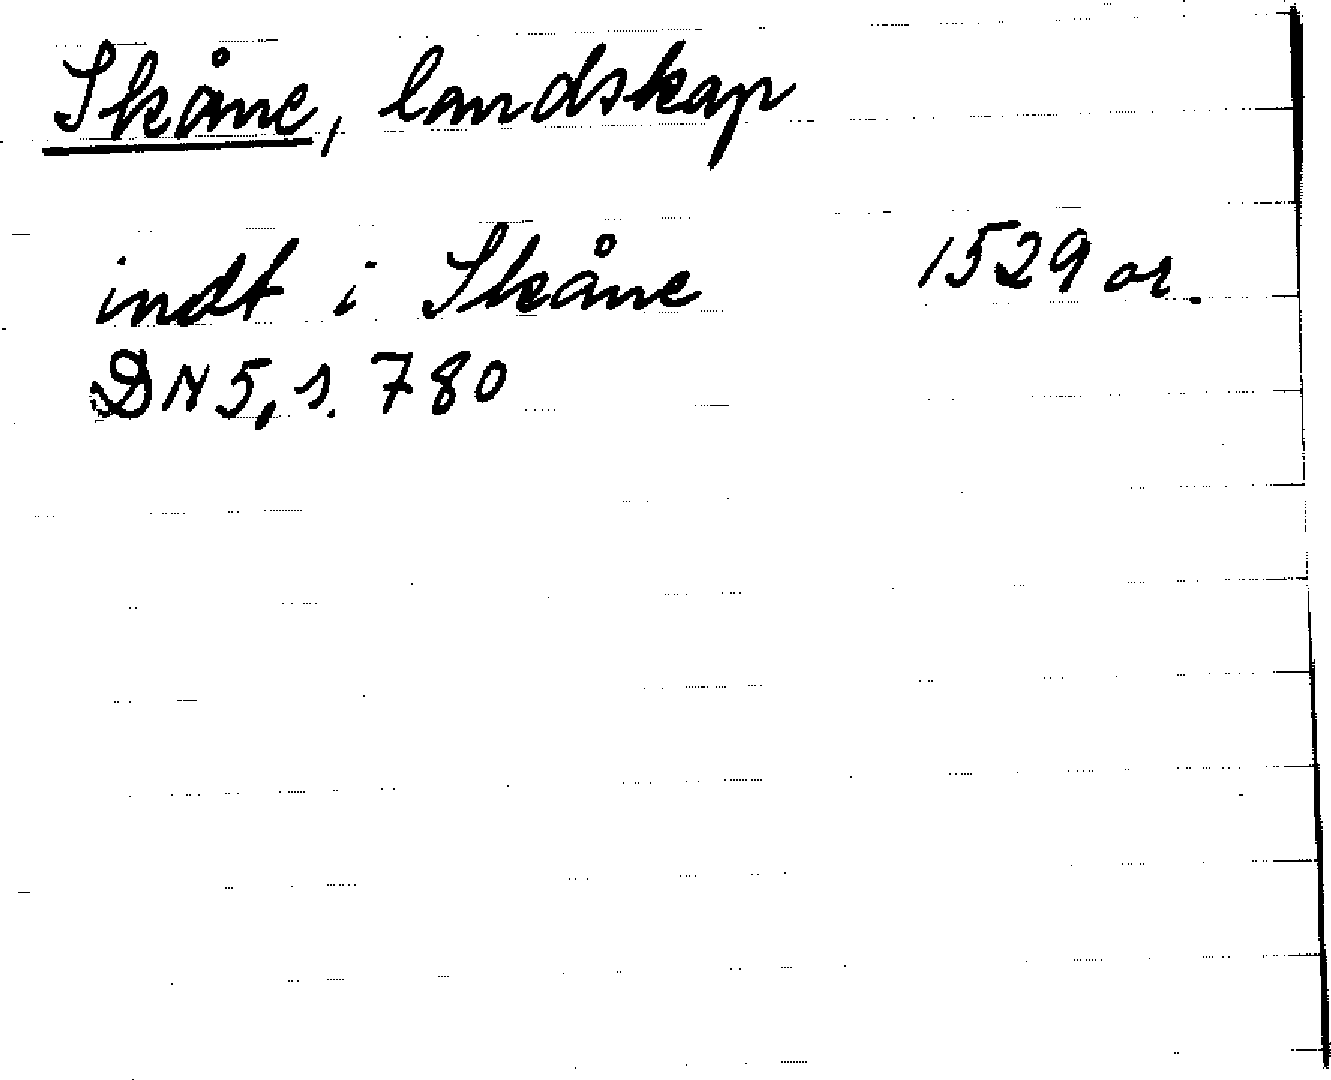 Skåne, landskap
indt i Skåne 1529 or.
DN 5, s. 780